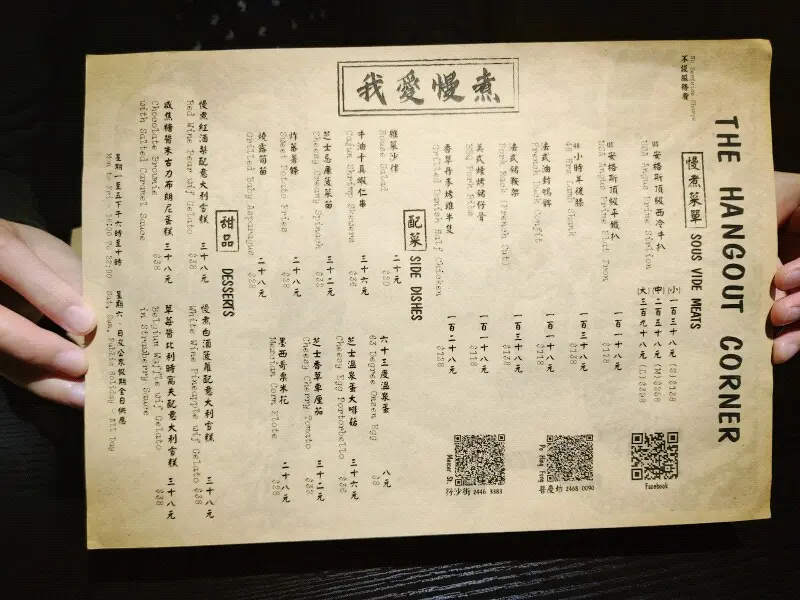 我愛慢煮
THE HANGOUT CORNER
不設服務費
No Service Charge
慢煮菜單 SOUS VIDE MEATS
US安格斯頂級西冷牛扒 (小)一百三十八元
USA Angus Prime Sirloin (S)$138
(中)二百五十八元 (M)$258
(大)三百九十八元 (L)$398
US安格斯頂級牛鐵扒 一百一十八元
USA Angus Prime Flat Iron $118
48小時羊後膝 一百三十八元
48 Hrs Lamb Shank $138
法式油封鴨髀
French Duck Confit
法式豬鞍架
Pork Rack (French Cut)
美式燒烤豬仔骨 一百一十八元
BBQ Pork Ribs $118
香草丹麥燒雞半隻 一百二十八元
Grilled Danish Half Chicken $128
配菜 SIDE DISHES
雜菜沙律 二十元
House Salad $20
牛油卡真蝦仁串 三十六元
Cajun Shrimp Skewers $36
芝士忌廉菠菜苗 三十二元
Cheesy Creamy Spinach $32
炸蕃薯條 二十八元
Sweet Potato Fries $28
燒露筍苗 二十八元
Grilled Baby Asparagus $28
六十三度溫泉蛋 八元
63 Degree Onsen Egg $8
芝士溫泉蛋大啡菇 三十六元
Cheesy Egg Portobello $36
芝士香草車厘茄 三十二元
Cheesy Cherry Tomato $32
墨西哥粟米花 二十八元
Mexican Corn Elote $28
甜品 DESSERTS
慢煮紅酒梨配意大利雪糕 三十八元
Red Wine Pear wif Gelato $38
咸焦糖醬朱古力布朗尼蛋糕 三十八元
Chocolate Brownie $38
with Salted Caramel Sauce
慢煮白酒菠蘿配意大利雪糕 三十八元
White Wine Pineapple wif Gelato $38
草莓醬比利時窩夫配意大利雪糕 三十八元
Belgium Waffle wif Gelato $38
in Strawberry Sauce
星期一至五下午六時至十時
Mon to Fri - 18:00 To 22:00
星期六、日及公眾假期全日供應
Sat, Sun, Public Holiday - All Day
Facebook
Po Hing Fong
普慶坊 2468 0090
Mercer St.
孖沙街 2446 3383